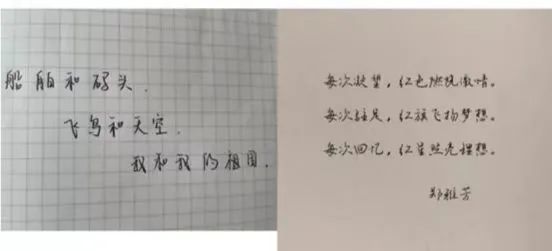 船舶和码头.
飞鸟和天空.
我和我的祖国.
每次凝望，红色燃烧激情。
每次驻足，红旗飞扬梦想。
每次回忆，红星照亮理想。
郑雅芳